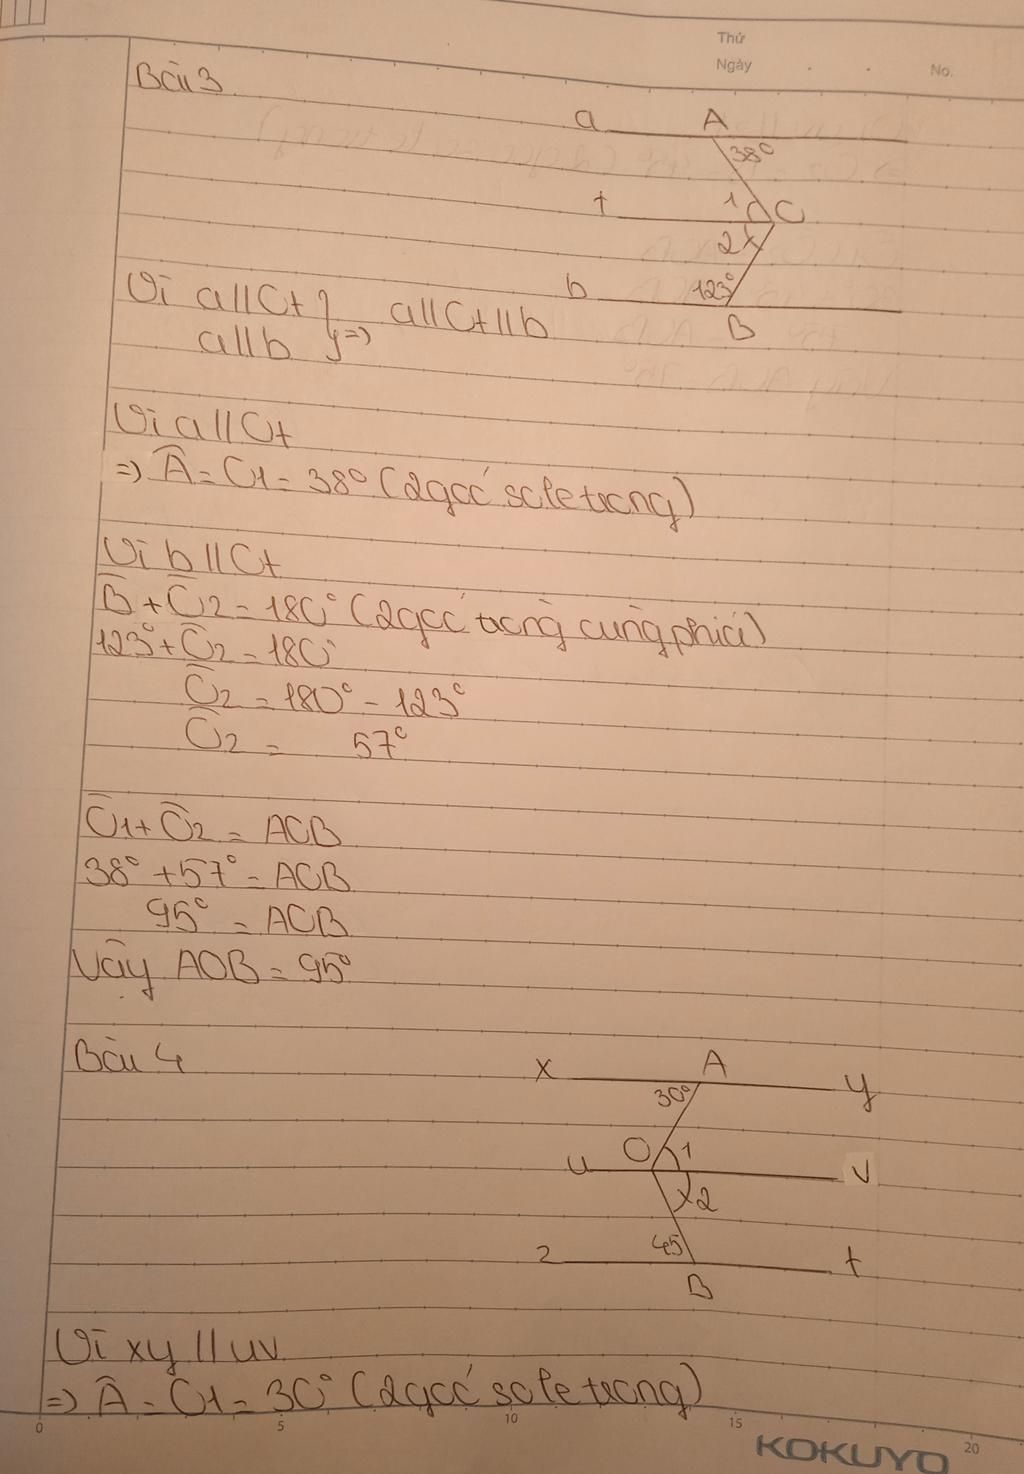 Thứ
Ngày . . No.
Bài 3
a A
38°
t 1 C
2
b 123°
B
Vì a//Ct } => a//Ct//b
a//b
Vì a//Ct
=> Â = C1 = 38° (2 góc so le trong)
Vì b//Ct
B̂ + Ĉ2 = 180° (2 góc trong cùng phía)
123° + Ĉ2 = 180°
Ĉ2 = 180° - 123°
Ĉ2 = 57°
Ĉ1 + Ĉ2 = ACB
38° + 57° = ACB
95° = ACB
Vậy AOB = 95°
Bài 4
x A y
30°
u O 1 v
2
z 45 t
B
Vì xy // uv
=> Â = O1 = 30° (2 góc so le trong)
0 5 10 15 20
KOKUYO